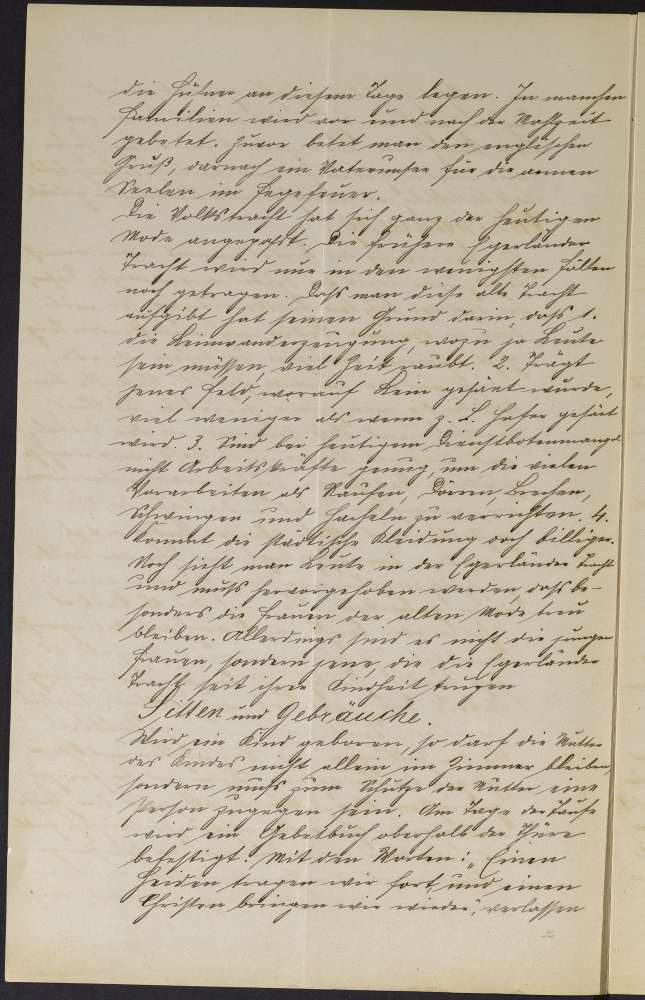 die Hühner an diesem Tage legen. In manchen
Familien wird vor und nach der Mahlzeit
gebetet. Zuvor betet man den englischen
Gruß, darnach ein Vaterunser für die armen
Seelen im Fegefeuer.
Die Volkstracht hat sich ganz der heutigen
Mode angepaßt. Die frühere Egerländer
Tracht wird nur in den wenigsten Fällen
noch getragen. Daß man diese alte Tracht
aufgibt hat seinen Grund darin, daß 1.
die Leinwanderzeugung, wozu ja Leute
sein müssen, viel Zeit raubt. 2. Trägt
jenes Feld, worauf Lein gesäet wurde,
viel weniger als wenn z. B. Hafer gesäet
wird. 3. Sind bei heutigem Dienstbotenmangel
nicht Arbeitskräfte genug, um die vielen
Vorarbeiten als Raufen, Dörren, Brechen,
Schwingen und Hacheln zu verrichten. 4.
Kommt die städtische Kleidung doch billiger.
Noch sieht man Leute in der Egerländer Tracht
und muß hervorgehoben werden, daß be-
sonders die Frauen der alten Mode treu
bleiben. Allerdings sind es nicht die jungen
Frauen, sondern jene, die die Egerländer
Tracht seit ihrer Kindheit trugen
Sitten und Gebräuche.
Wird ein Kind geboren, so darf die Mutter
des Kindes nicht allein im Zimmer bleiben,
sondern muß zum Schutze der Mutter eine
Person zugegen sein. Am Tage der Taufe
wird ein Gebetbuch oberhalb der Thüre
befestigt. Mit den Worten: „Einen
Heiden tragen wir fort und einen
Christen bringen wir wieder", verlassen